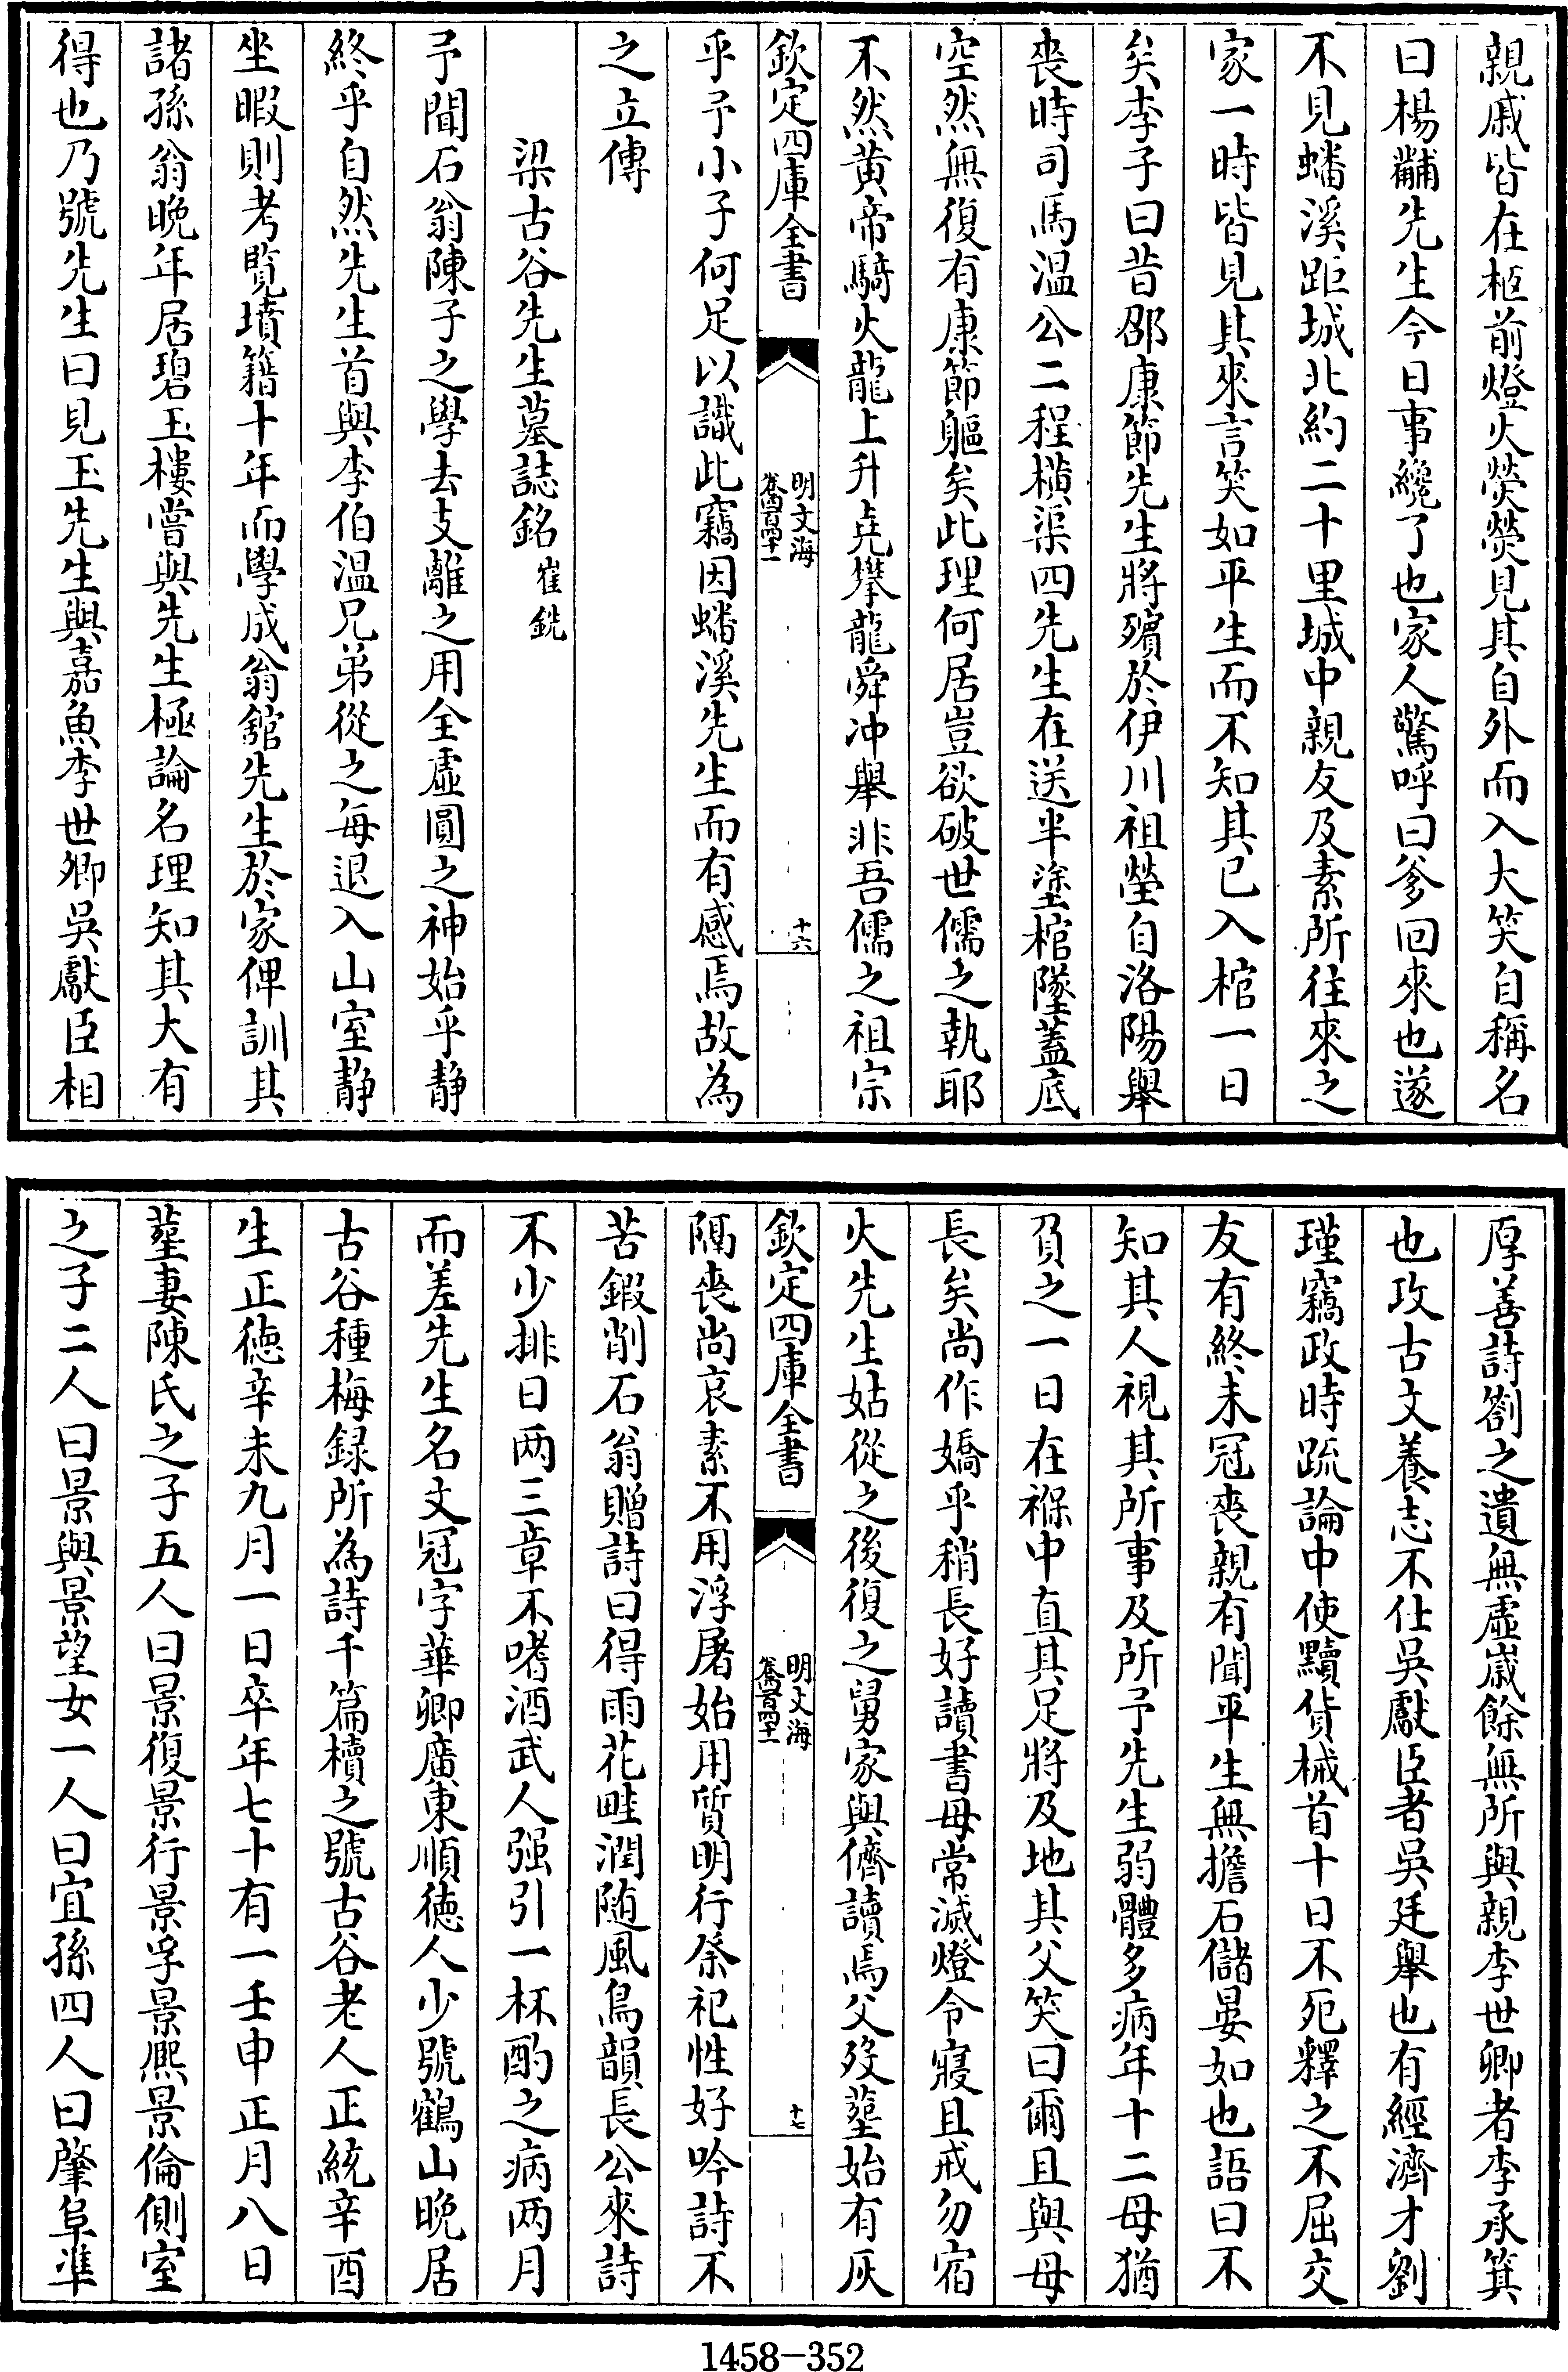 親戚皆在柩前燈火熒熒見其自外而入大笑自稱名
曰楊黼先生今日事纔了也家人驚呼曰爹回來也遂
不見蟠溪距城北約二十里城中親友及素所往來之
家一時皆見其來言笑如平生而不知其已入棺一日
矣李子曰昔邵康節先生將殯於伊川祖塋自洛陽舉
喪時司馬溫公二程橫渠四先生在送半塗棺墜蓋底
空然無復有康節軀矣此理何居豈欲破世儒之執耶
不然黄帝騎火龍上升堯攀龍舜冲舉非吾儒之祖宗
欽定四庫全書
明文海
卷四百四十一
十六
乎予小子何足以識此竊因蟠溪先生而有感焉故為
之立傳
梁古谷先生墓誌銘 崔銑
予聞石翁陳子之學去支離之用全虛圓之神始乎静
終乎自然先生首與李伯溫兄弟從之每退入山室静
坐暇則考覽墳籍十年而學成翁舘先生於家俾訓其
諸孫翁晚年居碧玉樓嘗與先生極論名理知其大有
得也乃號先生曰見玉先生與嘉魚李世卿吳獻臣相
厚善詩劄之遺無虛歲餘無所與親李世卿者李承箕
也攻古文養志不仕吳獻臣者吳廷舉也有經濟才劉
瑾竊政時疏論中使黷貨械首十日不死釋之不屈交
友有終未冠喪親有聞平生無擔石儲晏如也語曰不
知其人視其所事及所予先生弱體多病年十二母猶
負之一日在褓中直其足將及地其父笑曰爾且與母
長矣尚作嬌乎稍長好讀書母常滅燈令寢且戒勿宿
火先生姑從之後復之舅家與儕讀焉父歿塟始有灰
欽定四庫全書
明文海
卷四百四十一
十七
隔喪尚哀素不用浮屠始用質明行祭祀性好吟詩不
苦鍛削石翁贈詩曰得雨花畦潤随風鳥韻長公來詩
不少排日两三章不嗜酒武人强引一杯酌之病两月
而差先生名文冠字華卿廣東順德人少號鶴山晚居
古谷種梅録所為詩千篇櫝之號古谷老人正統辛酉
生正德辛未九月一日卒年七十有一壬申正月八日
塟妻陳氏之子五人曰景復景行景孚景熙景倫側室
之子二人曰景與景望女一人曰宜孫四人曰肇阜準
1458-352